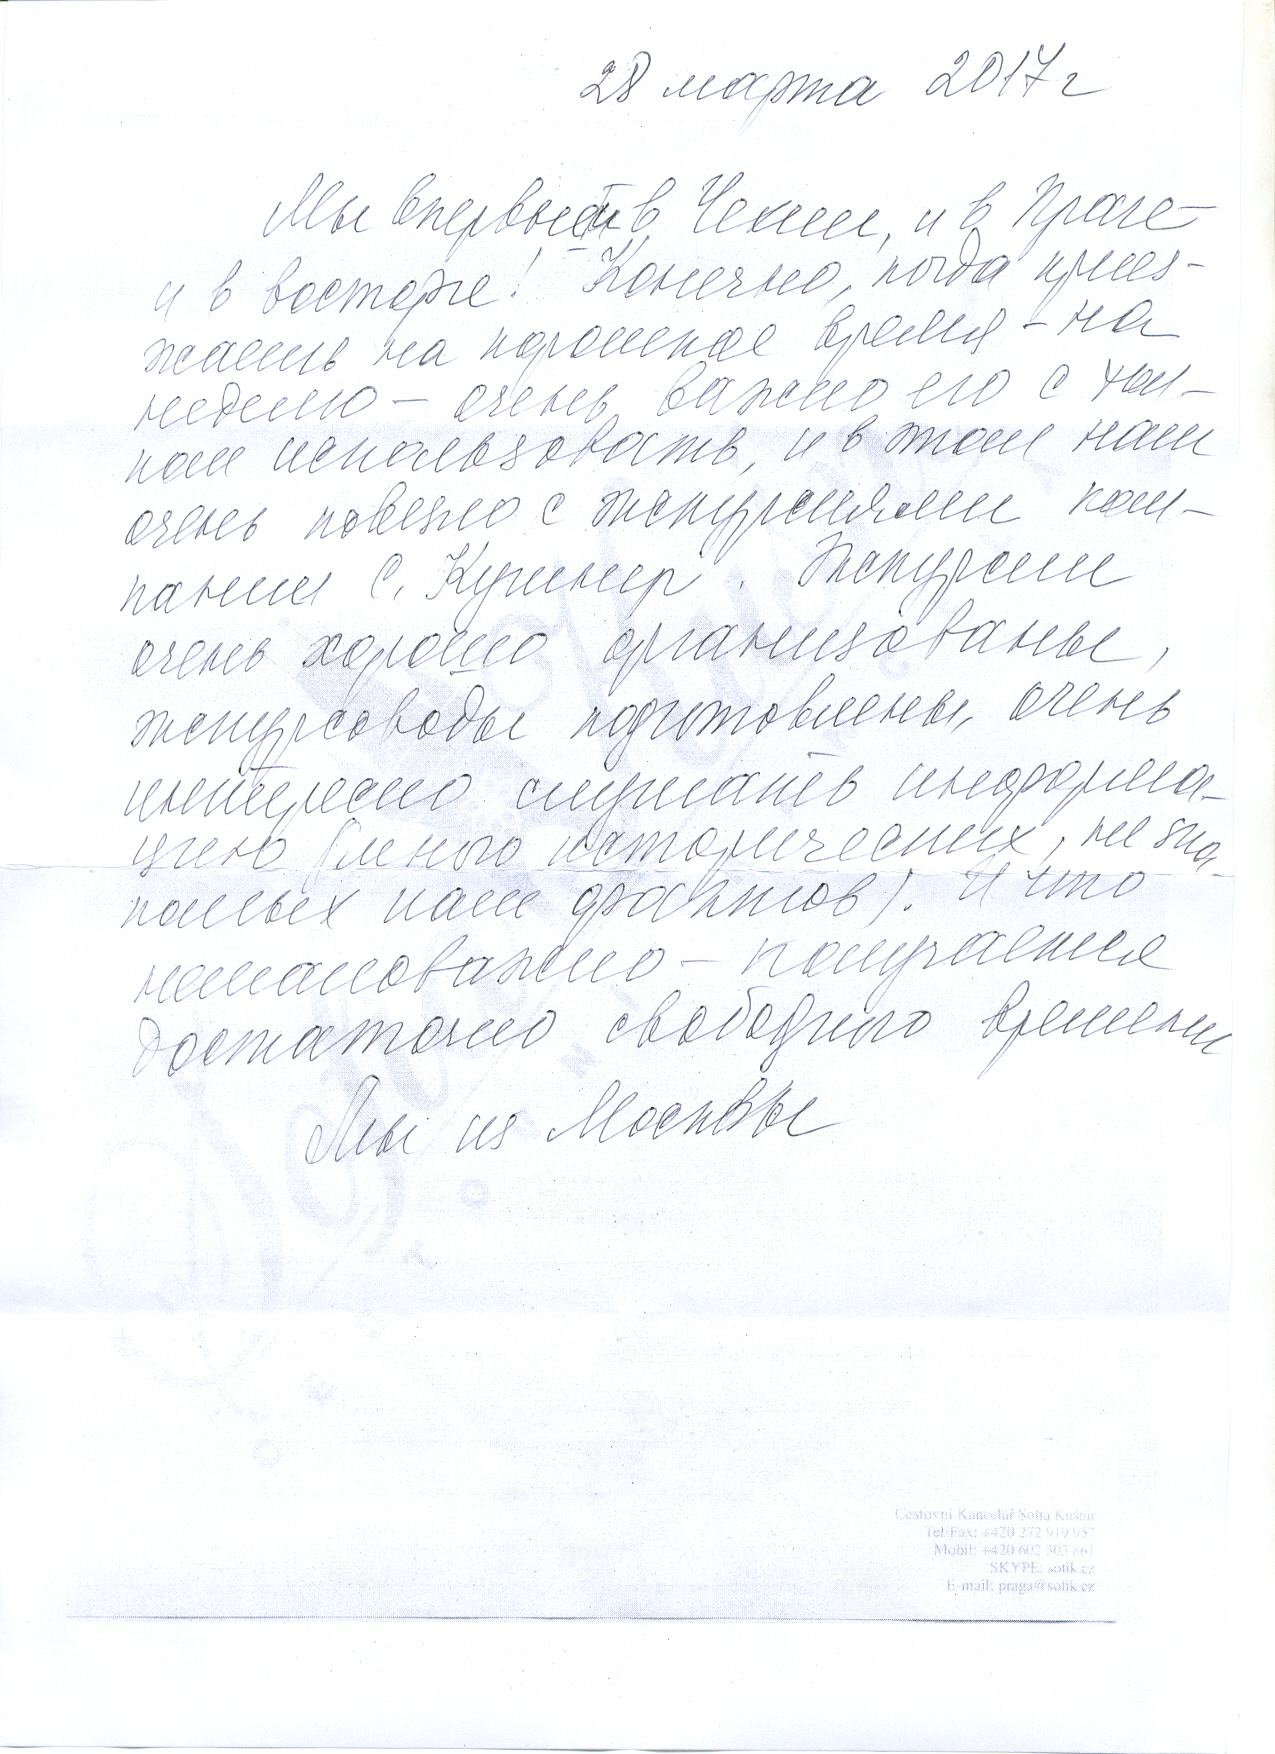 28 марта 2017 г
Мы впервые и в Чехии, и в Праге –
и в восторге! Конечно, когда приез-
жаешь на короткое время – на
неделю – очень важно его с тол-
ком использовать, и в этом нам
очень повезло с экскурсиями ком-
пании С. Кушнир. Экскурсии
очень хорошо организованы,
экскурсоводы подготовлены, очень
интересно слушать информа-
цию (много исторических, не зна-
комых нам фактов). И что
немаловажно – получается
достаточно свободного времени
Мы из Москвы
Cestovní Kancelář Sofia Kušnir
Tel/Fax: +420 272 919 957
Mobil: +420 602 303 861
SKYPE: sofik.cz
E-mail: praga@sofik.cz